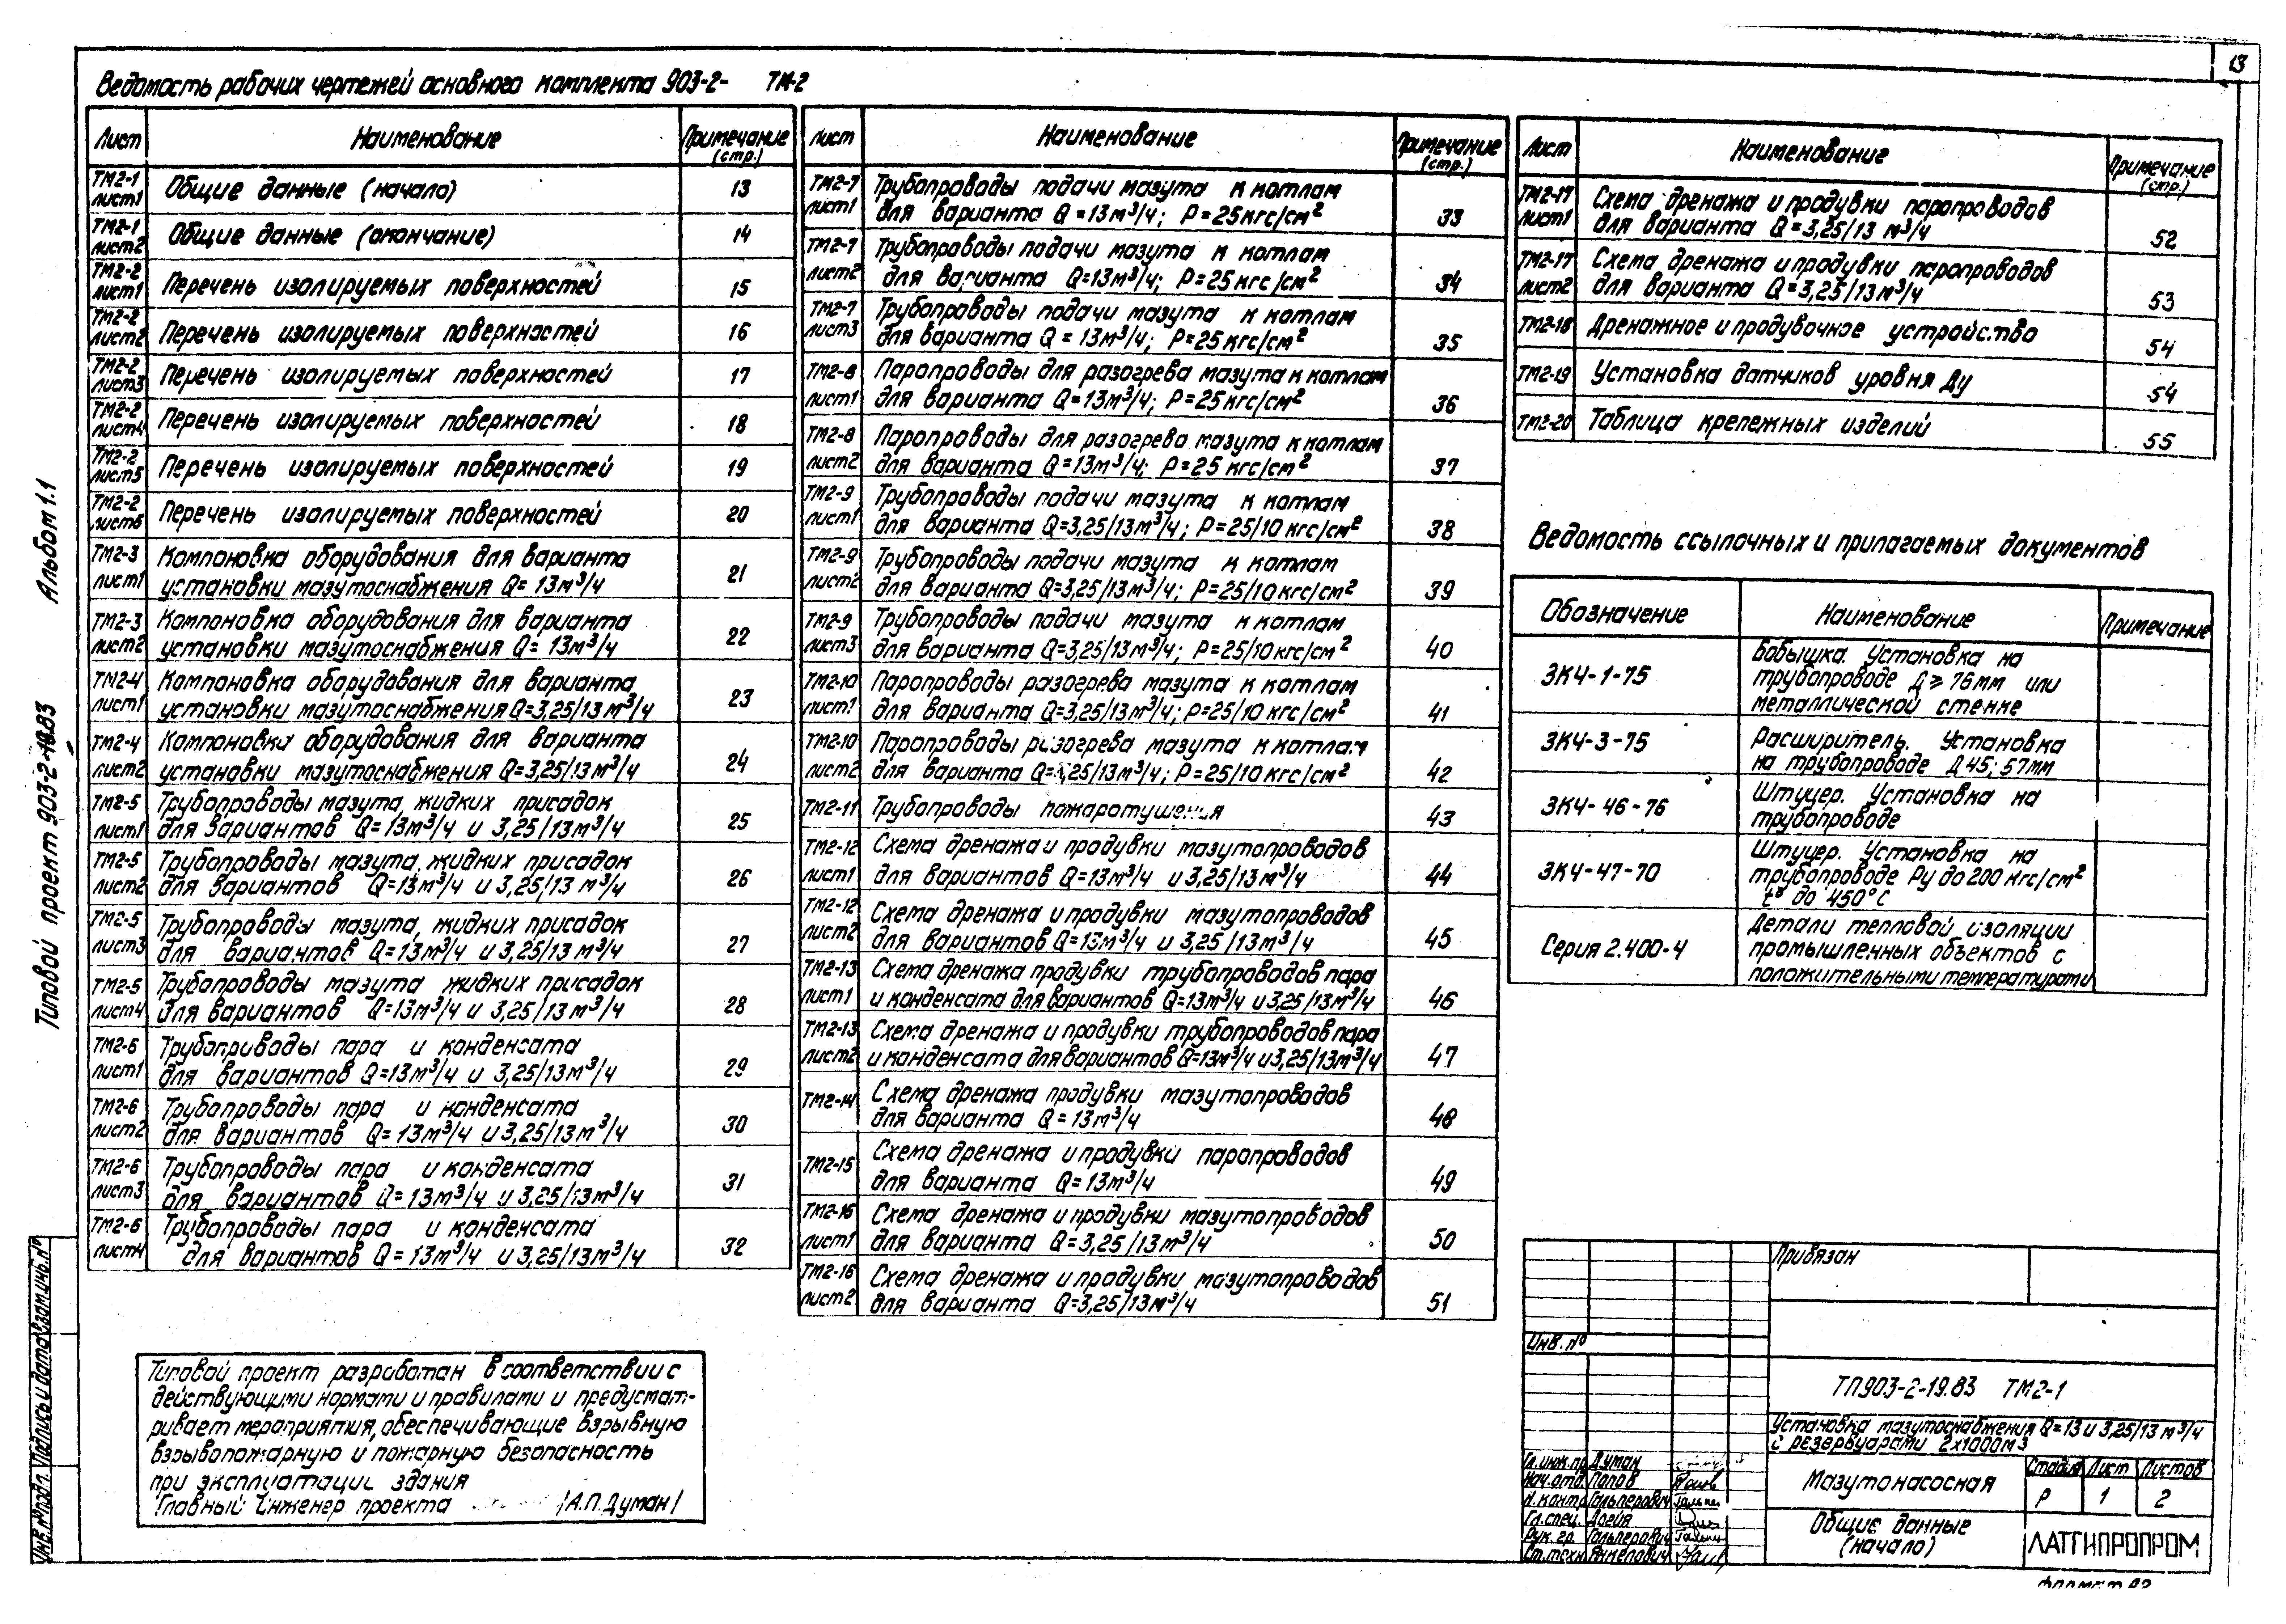 13
Ведомость рабочих чертежей основного комплекта 903-2- ТМ-2
Лист Наименование Примечание (стр.)
ТМ2-1 лист1 Общие данные (начало) 13
ТМ2-1 лист2 Общие данные (окончание) 14
ТМ2-2 лист1 Перечень изолируемых поверхностей 15
ТМ2-2 лист2 Перечень изолируемых поверхностей 16
ТМ2-2 лист3 Перечень изолируемых поверхностей 17
ТМ2-2 лист4 Перечень изолируемых поверхностей 18
ТМ2-2 лист5 Перечень изолируемых поверхностей 19
ТМ2-2 лист6 Перечень изолируемых поверхностей 20
ТМ2-3 Компоновка оборудования для варианта
лист1 установки мазутоснабжения Q= 13м³/ч 21
ТМ2-3 Компоновка оборудования для варианта
лист2 установки мазутоснабжения Q= 13м³/ч 22
ТМ2-4 Компоновка оборудования для варианта
лист1 установки мазутоснабжения Q=3,25/13 м³/ч 23
ТМ2-4 Компоновка оборудования для варианта
лист2 установки мазутоснабжения Q=3,25/13м³/ч 24
ТМ2-5 Трубопроводы мазута, жидких присадок
лист1 для вариантов Q=13м³/ч и 3,25/13м³/ч 25
ТМ2-5 Трубопроводы мазута, жидких присадок
лист2 для вариантов Q=13м³/ч и 3,25/13 м³/ч 26
ТМ2-5 Трубопроводы мазута, жидких присадок
лист3 для вариантов Q=13м³/ч и 3,25/13 м³/ч 27
ТМ2-5 Трубопроводы мазута жидких присадок
лист4 для вариантов Q=13м³/ч и 3,25/13м³/ч 28
ТМ2-6 Трубопроводы пара и конденсата
лист1 для вариантов Q=13м³/ч и 3,25/13м³/ч 29
ТМ2-6 Трубопроводы пара и конденсата
лист2 для вариантов Q= 13м³/ч и 3,25/13м³/ч 30
ТМ2-6 Трубопроводы пара и конденсата
лист3 для вариантов Q= 13м³/ч и 3,25/13м³/ч 31
ТМ2-6 Трубопроводы пара и конденсата
лист4 для вариантов Q= 13м³/ч и 3,25/13м³/ч 32
Лист Наименование Примечание (стр.)
ТМ2-7 Трубопроводы подачи мазута к котлам
лист1 для варианта Q=13м³/ч; Р=25кгс/см² 33
ТМ2-7 Трубопроводы подачи мазута к котлам
лист2 для варианта Q=13м³/ч; Р=25кгс/см² 34
ТМ2-7 Трубопроводы подачи мазута к котлам
лист3 для варианта Q = 13м³/ч; Р=25кгс/см² 35
ТМ2-8 Паропроводы для разогрева мазута к котлам
лист1 для варианта Q=13м³/ч; Р=25кгс/см² 36
ТМ2-8 Паропроводы для разогрева мазута к котлам
лист2 для варианта Q=13м³/ч; Р=25 кгс/см² 37
ТМ2-9 Трубопроводы подачи мазута к котлам
лист1 для варианта Q=3,25/13м³/ч; Р=25/10 кгс/см² 38
ТМ2-9 Трубопроводы подачи мазута к котлам
лист2 для варианта Q=3,25/13м³/ч; Р=25/10кгс/см² 39
ТМ2-9 Трубопроводы подачи мазута к котлам
лист3 для варианта Q=3,25/13м³/ч; Р=25/10кгс/см² 40
ТМ2-10 Паропроводы разогрева мазута к котлам
лист1 для варианта Q=3,25/13м³/ч; Р=25/10 кгс/см² 41
ТМ2-10 Паропроводы разогрева мазута к котлам
лист2 для варианта Q=3,25/13м³/ч; Р=25/10кгс/см² 42
ТМ2-11 Трубопроводы пожаротушения 43
ТМ2-12 Схема дренажа и продувки мазутопроводов
лист1 для вариантов Q=13м³/ч и 3,25/13м³/ч 44
ТМ2-12 Схема дренажа и продувки мазутопроводов
лист2 для вариантов Q=13м³/ч и 3,25/13м³/ч 45
ТМ2-13 Схема дренажа продувки трубопроводов пара
лист1 и конденсата для вариантов Q=13м³/ч и 3,25/13м³/ч 46
ТМ2-13 Схема дренажа и продувки трубопроводов пара
лист2 и конденсата для вариантов Q=13м³/ч и 3,25/13м³/ч 47
ТМ2-14 Схема дренажа продувки мазутопроводов
для варианта Q = 13м³/ч 48
ТМ2-15 Схема дренажа и продувки паропроводов
для варианта Q=13м³/ч 49
ТМ2-16 Схема дренажа и продувки мазутопроводов
лист1 для варианта Q=3,25/13м³/ч 50
ТМ2-16 Схема дренажа и продувки мазутопроводов
лист2 для варианта Q=3,25/13м³/ч 51
Лист Наименование Примечание (стр.)
ТМ2-17 Схема дренажа и продувки паропроводов
лист1 для варианта Q=3,25/13 м³/ч 52
ТМ2-17 Схема дренажа и продувки паропроводов
лист2 для варианта Q=3,25/13м³/ч 53
ТМ2-18 Дренажное и продувочное устройство 54
ТМ2-19 Установка датчиков уровня Ду 54
ТМ2-20 Таблица крепежных изделий 55
Ведомость ссылочных и прилагаемых документов
Обозначение Наименование Примечание
ЗКЧ-1-75 Бобышка. Установка на
трубопроводе Д ≥ 76мм или
металлической стенке
ЗКЧ-3-75 Расширитель. Установка
на трубопроводе Д 45; 57мм
ЗКЧ-46-76 Штуцер. Установка на
трубопроводе
ЗКЧ-47-70 Штуцер. Установка на
трубопроводе Ру до 200 кгс/см²
t° до 450°С
Серия 2.400-4 Детали тепловой изоляции
промышленных объектов с
положительными температурами
Типовой проект разработан в соответствии с
действующими нормами и правилами и предусмат-
ривает мероприятия, обеспечивающие взрывную
взрывопожарную и пожарную безопасность
при эксплуатации здания
Главный инженер проекта /А.П.Думан/
Типовой проект 903-2-19.83 Альбом 1.1
Инв.№подл. Подпись и дата Взам.инв.№
Привязан
Инв.№
ТП903-2-19.83 ТМ2-1
Установка мазутоснабжения Q=13 и 3,25/13 м³/ч
с резервуарами 2х1000м3
Гл.инж.пр. Думан
Нач.отд. Попов
Н.контр. Гальперович
Гл.спец.
Рук.гр. Гальперович
Ст.техн. Янкелович
Мазутонасосная
Стадия Лист Листов
Р 1 2
Общие данные
(начало)
ЛАТГИПРОПРОМ
Формат А2